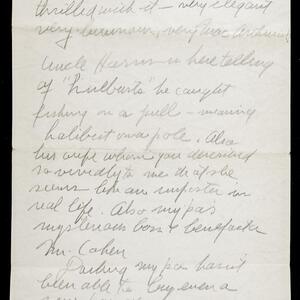 thrilled with it – very elegant
very luxurious, very
Uncle Harris is here telling
of "hulburts" he caught
fishing on a pell – meaning
halibut on a pole. Also
his wife whom you described
so vividly to me that she
seems like an imposter in
real life. Also my pa's
mysterious boss & benefactor
Mr. Cohen
Darling my pa hasn't
been able to buy even a